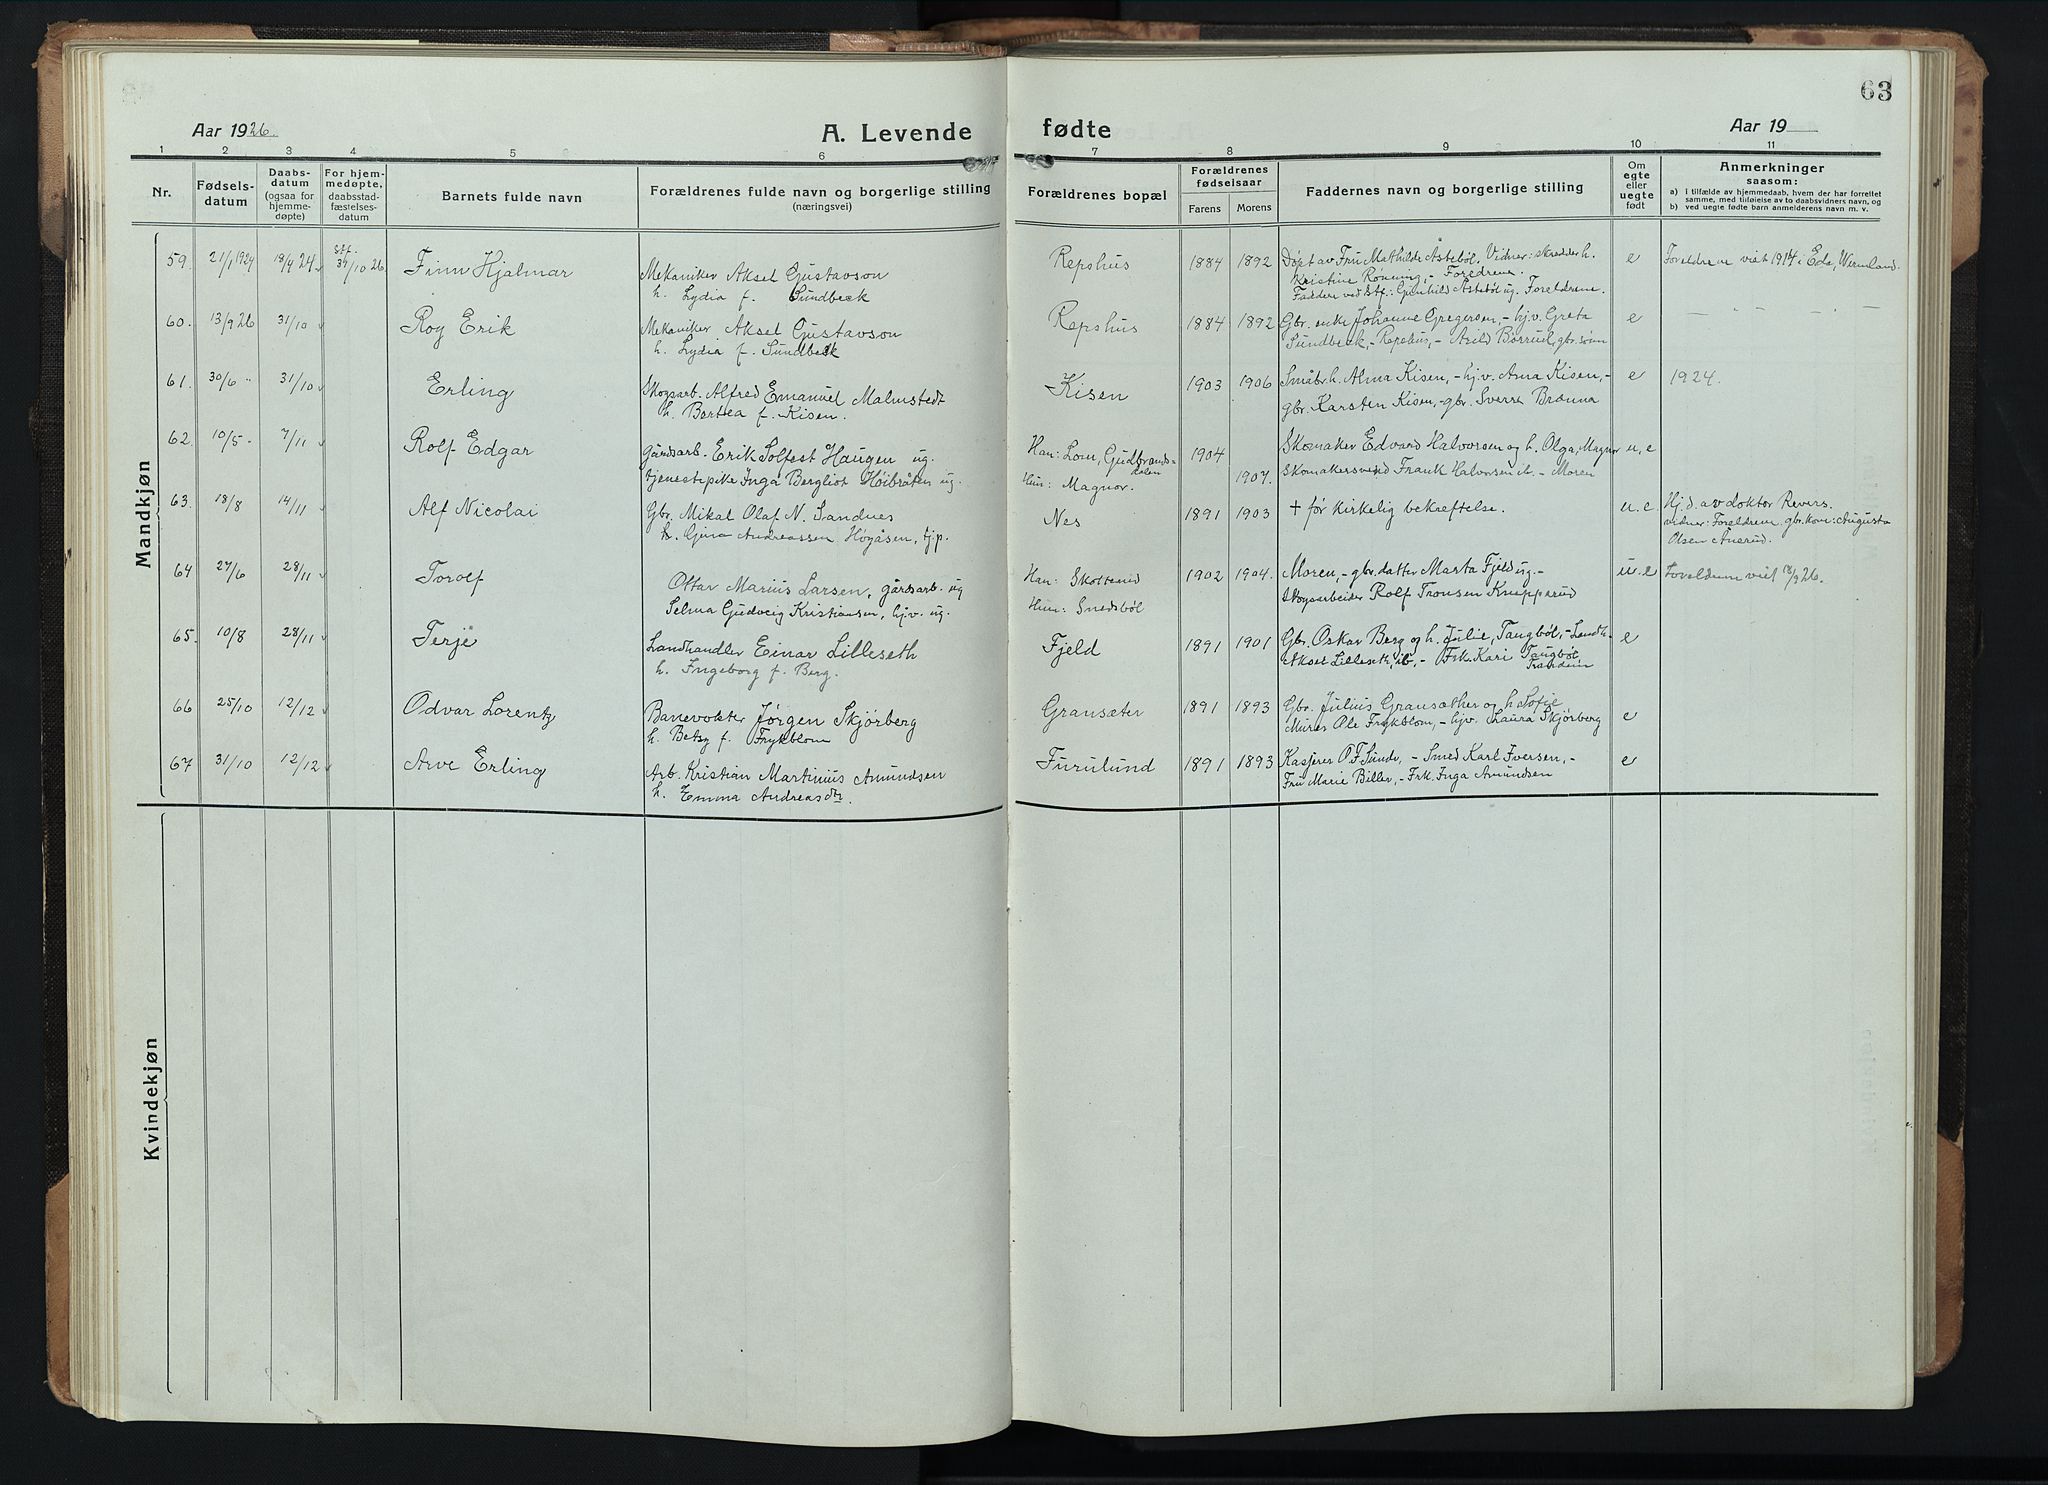 63
Aar 1926.
A. Levende
fødte
Aar 19
1 2 3 4 5 6 7 8 9 10 11
Nr.
Fødsels-
datum
Daabs-
datum
(ogsaa for
hjemme-
døpte)
For hjem-
medøpte,
daabsstad-
fæstelses-
datum
Barnets fulde navn
Forældrenes fulde navn og borgerlige stilling
(næringsvei)
Forældrenes bopæl
Forældrenes
fødselsaar
Farens Morens
Faddernes navn og borgerlige stilling
Om
egte
eller
uegte
født
Anmerkninger
saasom:
a) i tilfælde av hjemmedaab, hvem der har forrettet
samme, med tilføielse av to daabsvidners navn, og
b) ved uegte fødte barn anmelderens navn m. v.
Mandkjøn
59. 21/1 1924 18/9 24 stf. 31/10 26. Finn Hjalmar Mekaniker Aksel Gustavson Repshus 1884 1892 Døpt av Fru Mathilde Åstebøl. Vidner: skredder h. e Foreldrene viet 1914 i Eda, Wermland.
h. Lydia f. Sundbeck Kristine Rønning, - Foredrene.
Faddere ved stf.: Gunhild Åstebøl ug. Foreldrene.
60. 13/9 26 31/10 Roy Erik Mekaniker Aksel Gustavson Repshus 1884 1892 Gbr. enke Johanne Gregersen, - hj.v. Greta e — " — " —
h. Lydia f. Sundbeck Sundbeck, - Repshus, - Arild Børrud, gbr. sønn
61. 30/6 " 31/10 Erling Skogsarb. Alfred Emanuel Malmstedt Kisen 1903 1906 Småbr. h. Alma Kisen, - hj.v. Anna Kisen, - e 1924.
h. Bertea f. Kisen. gbr. Karsten Kisen, - gbr. Sverre Brænna
62. 10/5 - 7/11 Rolf Edgar Gårdsarb. Erik Solfest Haugen ug. Han: Lom, Gudbrands- 1904 Skomaker Edvard Halvorsen og h. Olga, Magnor u, e
dalen
tjenestepike Inga Bergliot Høibråten ug. Hun: Magnor. 1907. Skomakersvend Frank Halvorsen - Moren
63. 18/8 14/11 Alf Nicolai Gbr. Mikal Olaf N. Sandnes Nes 1891 1903 + før kirkelig bekreftelse. u. e. Hj. d. av doktor Revers.
h. Gina Andreassen Høgåsen, tj.p. vidner: Foreldrene. gbr. kone: Augusta
Olsen Anerud.
64 27/6 28/11 Torolf Ottar Marius Larsen, gårdsarb. ug Han: Skotterud 1902 1904. Moren, - gbr. datter Marta Fjeld ug. - u. e Foreldrene viet 18/9 26.
Selma Gudveig Kristiansen, hj.v. ug. Hun: Snedsbøl Skogsarbeider Rolf Tronsen Knapperud
65. 10/8 28/11 Terje Landhandler Einar Lilleseth Fjeld 1891 1901 Gbr. Oskar Berg og h. Julie, Tangbøl, - Landh. e
h. Ingeborg f. Berg. Aksel Lilleseth, ib, - Frk. Kari Tangbøl
66 25/10 12/12 Odvar Lorentz Banevokter Jørgen Skjørberg Gransæter 1891 1893 Gbr. Julius Gransæther og h. Sofie e
h. Betsy f. Frykblom Murer Ole Frykblom, - hjv. Laura Skjørberg
67 31/10 12/12 Arve Erling Arb. Kristian Martinius Amundsen Furulund 1891 1893 Kasjerer O. F. Sundr, - Smed Karl Iversen, - e
h. Emma Andreasdtr. Fru Marie Biller, - Frk. Inga Amundsen
Kvindekjøn